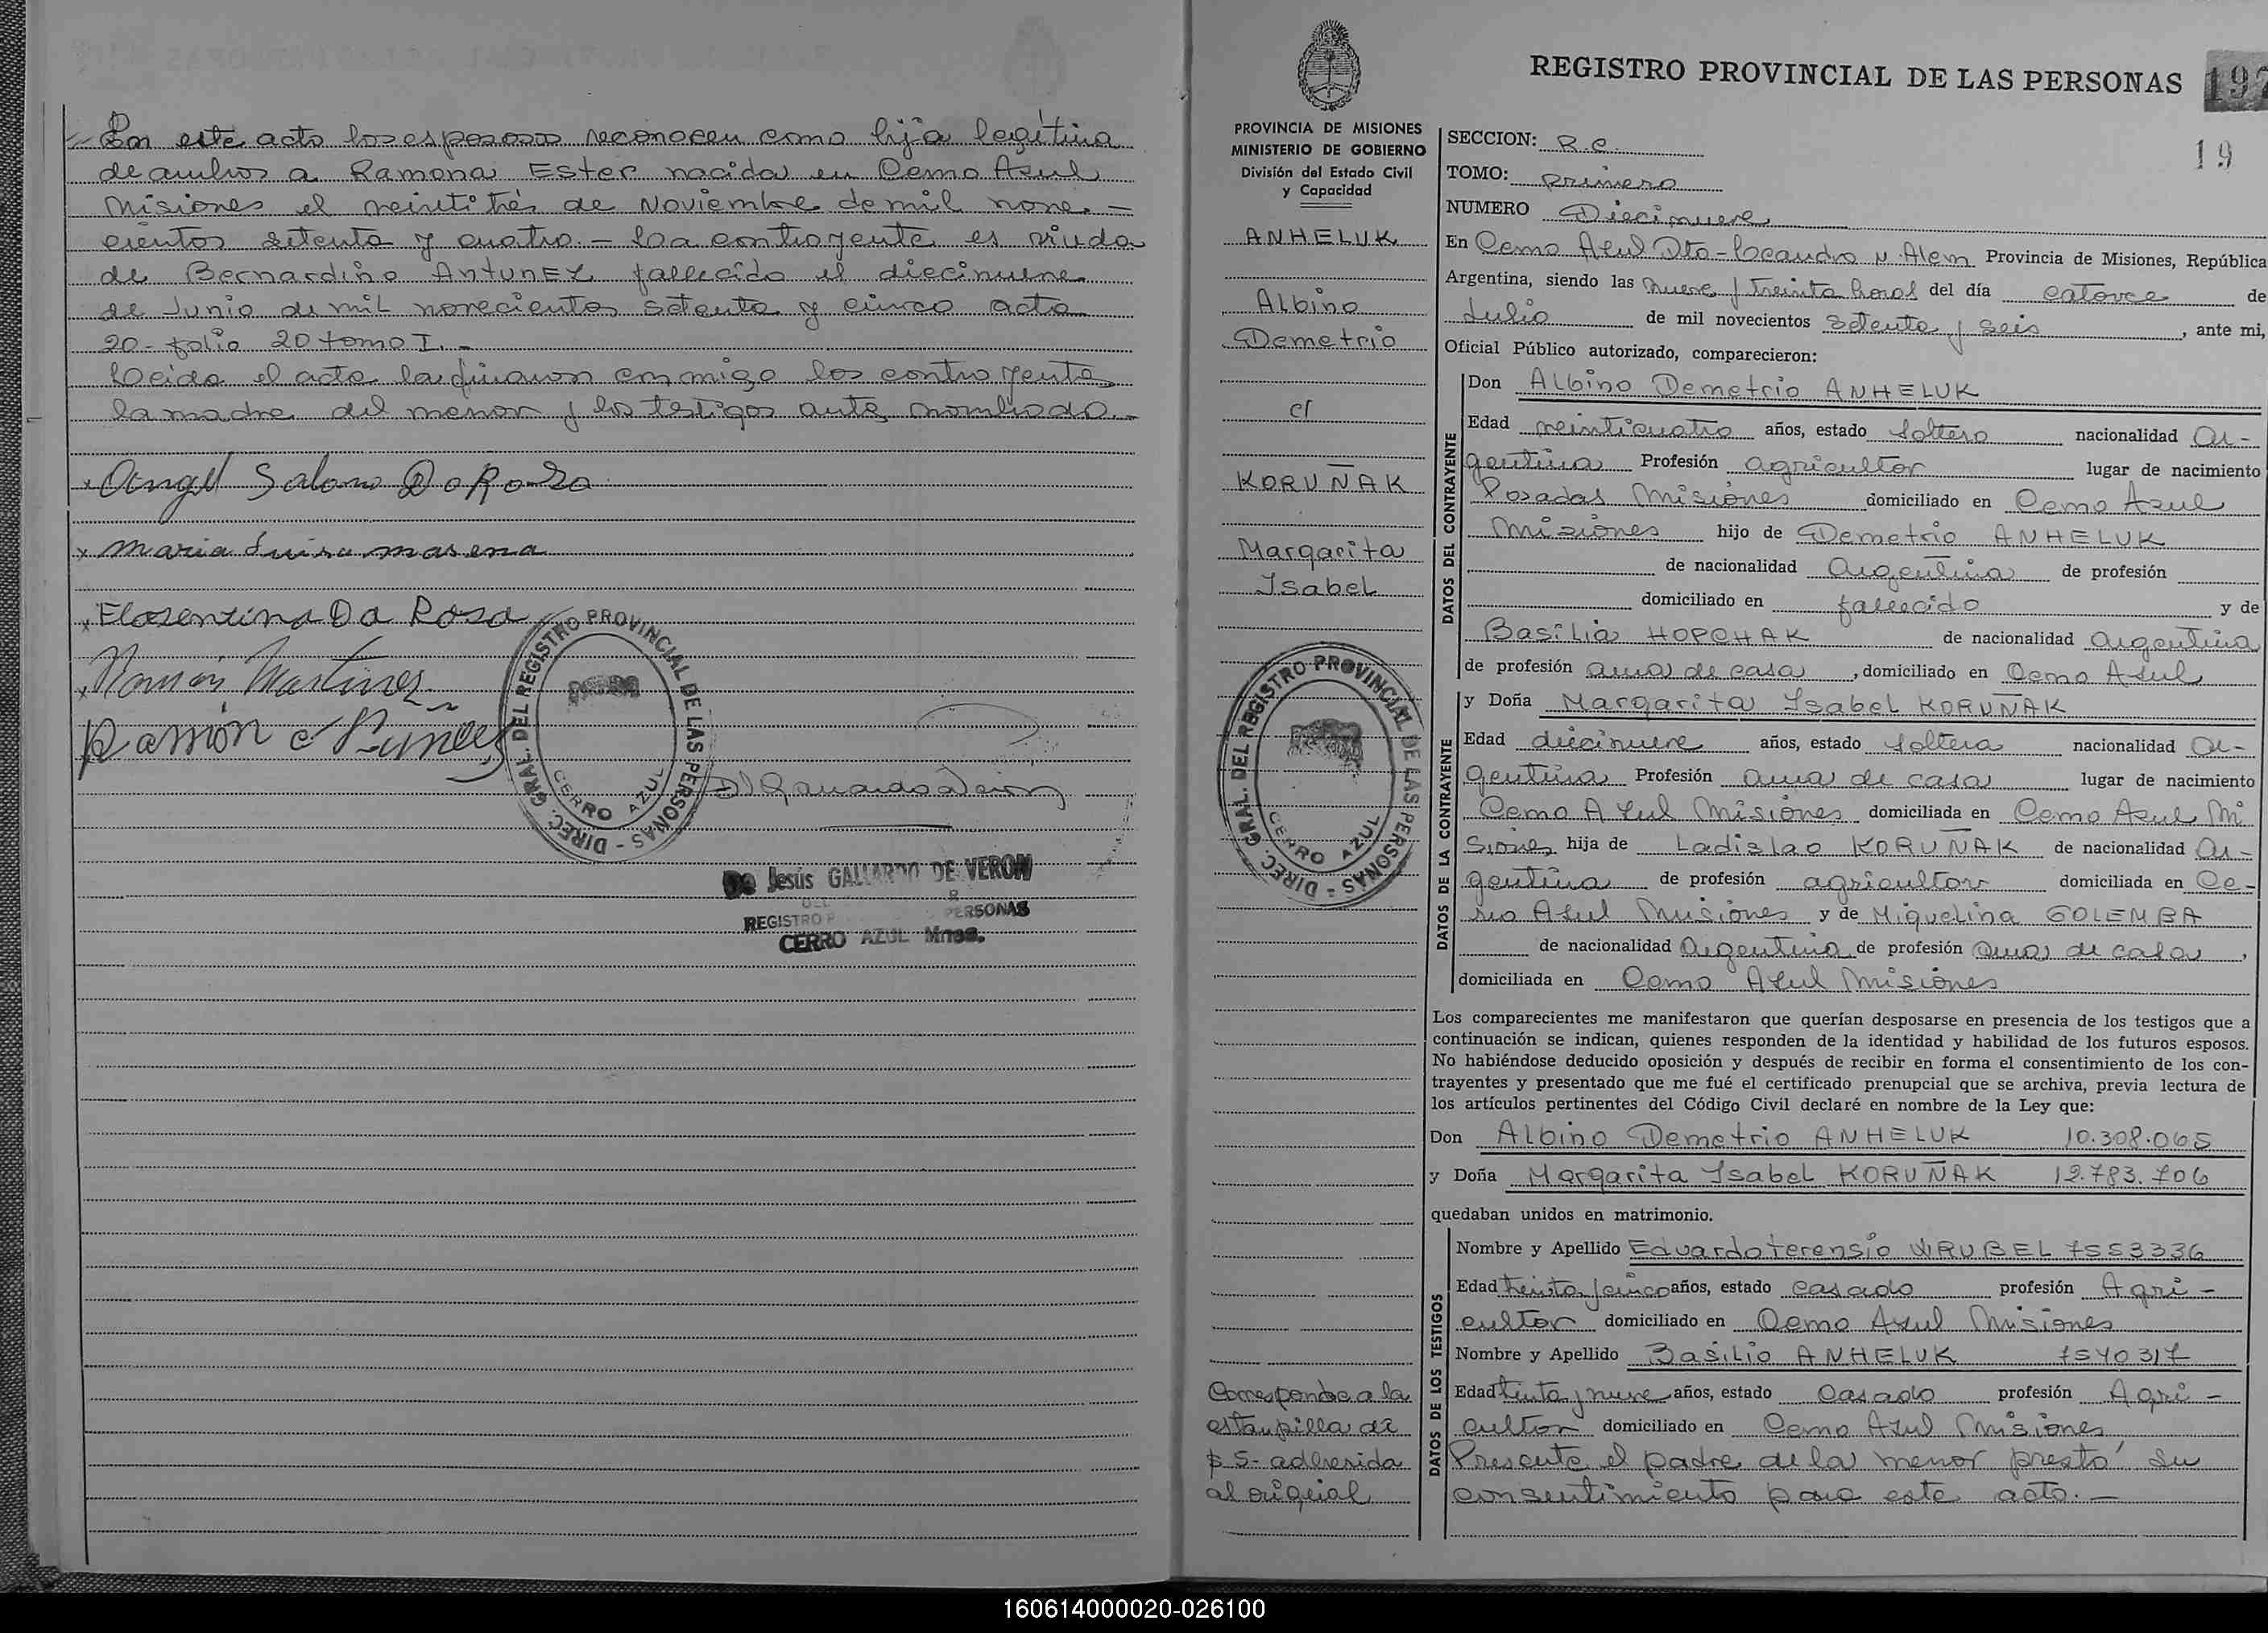 En este acto los esposos reconocen como hija legítima
de ambos a Ramona Ester nacida en Cerro Azul
Misiones el veintitrés de Noviembre de mil nove-
cientos setenta y cuatro.- La contrayente es viuda
de Bernardino ANTUNEZ fallecido el diecinueve
de Junio de mil novecientos setenta y cinco acta
20- folio 20 tomo I.-
Leida el acta la firmaron conmigo los contrayentes
la madre del menor y los testigos ante nombrado.-
Angel Da Rosa
maria Luisa masena
Florentina Da Rosa
Ramón Martínez
Ramón
DIREC. GRAL. DEL REGISTRO PROVINCIAL DE LAS PERSONAS -
CERRO AZUL
Jesús GALLARDO DE VERON
REGISTRO PERSONAS
CERRO AZUL Mnes.
REGISTRO PROVINCIAL DE LAS PERSONAS
197
19
PROVINCIA DE MISIONES
MINISTERIO DE GOBIERNO
División del Estado Civil
y Capacidad
ANHELUK
Albino
Demetrio
c/
KORUÑAK
Margarita
Isabel
DIREC. GRAL. DEL REGISTRO PROVINCIAL DE LAS PERSONAS -
CERRO AZUL
Corresponde a la
estampilla de
$ 5- adherida
al original
SECCION: R.C.
TOMO: primero
NUMERO Diecinueve
En Cerro Azul Dto-Leandro N. Alem Provincia de Misiones, República
Argentina, siendo las nueve y treinta horas del día catorce de
Julio de mil novecientos setenta y seis, ante mi,
Oficial Público autorizado, comparecieron:
DATOS DEL CONTRAYENTE
Don Albino Demetrio ANHELUK
Edad veinticuatro años, estado soltero nacionalidad Ar-
gentina Profesión agricultor lugar de nacimiento
Posadas Misiones domiciliado en Cerro Azul
Misiones hijo de Demetrio ANHELUK
de nacionalidad Argentina de profesión
domiciliado en fallecido y de
Basilia HOPCHAK de nacionalidad Argentina
de profesión ama de casa, domiciliado en Cerro Azul
DATOS DE LA CONTRAYENTE
y Doña Margarita Isabel KORUÑAK
Edad diecinueve años, estado soltera nacionalidad Ar-
gentina Profesión ama de casa lugar de nacimiento
Cerro Azul Misiones domiciliada en Cerro Azul Mi
siones hija de Ladislao KORUÑAK de nacionalidad Ar-
gentina de profesión agricultor domiciliada en Ce-
rro Azul Misiones y de Miquelina GOLEMBA
de nacionalidad Argentina de profesión ama de casa,
domiciliada en Cerro Azul Misiones
Los comparecientes me manifestaron que querían desposarse en presencia de los testigos que a
continuación se indican, quienes responden de la identidad y habilidad de los futuros esposos.
No habiéndose deducido oposición y después de recibir en forma el consentimiento de los con-
trayentes y presentado que me fué el certificado prenupcial que se archiva, previa lectura de
los artículos pertinentes del Código Civil declaré en nombre de la Ley que:
Don Albino Demetrio ANHELUK 10.308.065
y Doña Margarita Isabel KORUÑAK 12.783.706
quedaban unidos en matrimonio.
DATOS DE LOS TESTIGOS
Nombre y Apellido Eduardo terensio WRUBEL 7553336
Edad treinta y cinco años, estado casado profesión Agri-
cultor domiciliado en Cerro Azul Misiones
Nombre y Apellido Basilio ANHELUK 7540317
Edad treinta y nueve años, estado casado profesión Agri-
cultor domiciliado en Cerro Azul Misiones
Presente el padre de la menor prestó su
consentimiento para este acto.-
160614000020-026100